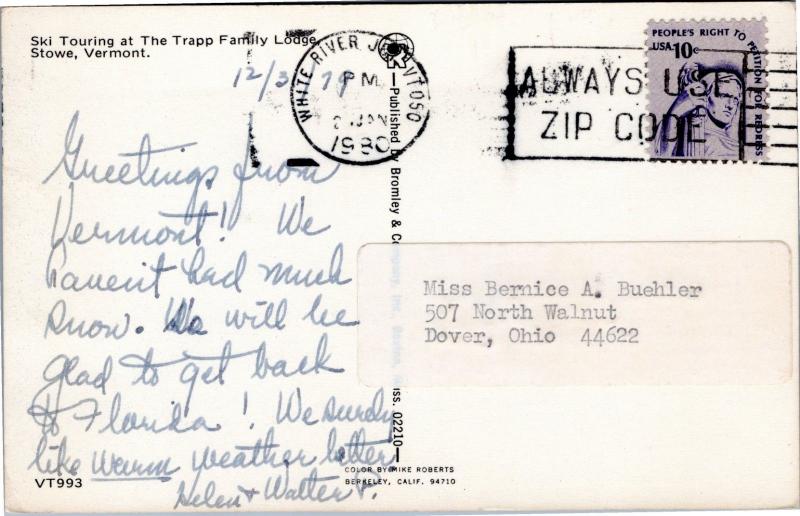 Ski Touring at The Trapp Family Lodge
Stowe, Vermont.
12/31/79
WHITE RIVER JCT VT 050
PM
2 JAN
1980
ALWAYS USE
ZIP CODE
PEOPLE'S RIGHT TO PETITION FOR REDRESS
USA 10c
Greetings from
Vermont! We
havent had much
snow. We will be
glad to get back
to Florida! We surely
like warm weather better
Helen & Walter
—Published by Bromley & Company, Inc., Boston, Mass. 02210—
Miss Bernice A. Buehler
507 North Walnut
Dover, Ohio 44622
VT993
COLOR BY MIKE ROBERTS
BERKELEY, CALIF. 94710